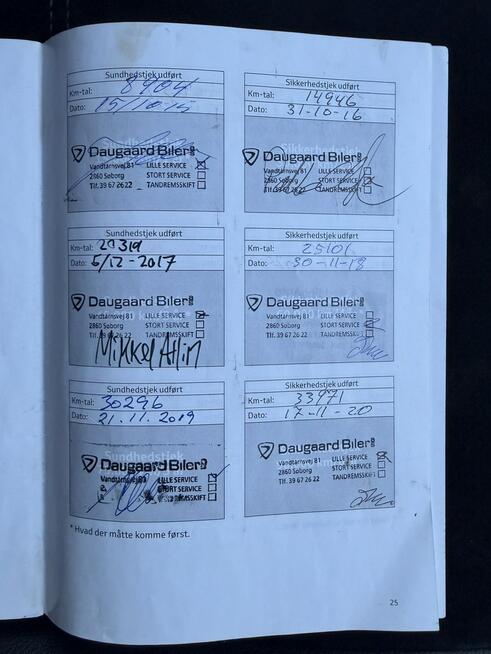 Sundhedstjek udført
Km-tal: 8904
Dato: 15/10-15
Daugaard Biler
Vandtårnsvej 81 LILLE SERVICE
2860 Søborg STORT SERVICE
Tlf. 39 67 26 22 TANDREMSSKIFT
Sikkerhedstjek udført
Km-tal: 14946
Dato: 31-10-16
Daugaard Biler
Vandtårnsvej 81 LILLE SERVICE
2860 Søborg STORT SERVICE
Tlf. 39 67 26 22 TANDREMSSKIFT
Sundhedstjek udført
Km-tal: 20319
Dato: 5/12-2017
Daugaard Biler
Vandtårnsvej 81 LILLE SERVICE
2860 Søborg STORT SERVICE
Tlf. 39 67 26 22 TANDREMSSKIFT
Mikkel
Sikkerhedstjek udført
Km-tal: 25101
Dato: 30-11-18
Daugaard Biler
Vandtårnsvej 81 LILLE SERVICE
2860 Søborg STORT SERVICE
Tlf. 39 67 26 22 TANDREMSSKIFT
Sundhedstjek udført
Km-tal: 30296
Dato: 21.11.2019
Sundhedstjek
Daugaard Biler
Vandtårnsvej 81 LILLE SERVICE
STORT SERVICE
TANDREMSSKIFT
Sikkerhedstjek udført
Km-tal: 33971
Dato: 17-11-20
Daugaard Biler
Vandtårnsvej 81 LILLE SERVICE
2860 Søborg STORT SERVICE
Tlf. 39 67 26 22 TANDREMSSKIFT
* Hvad der måtte komme først.
25